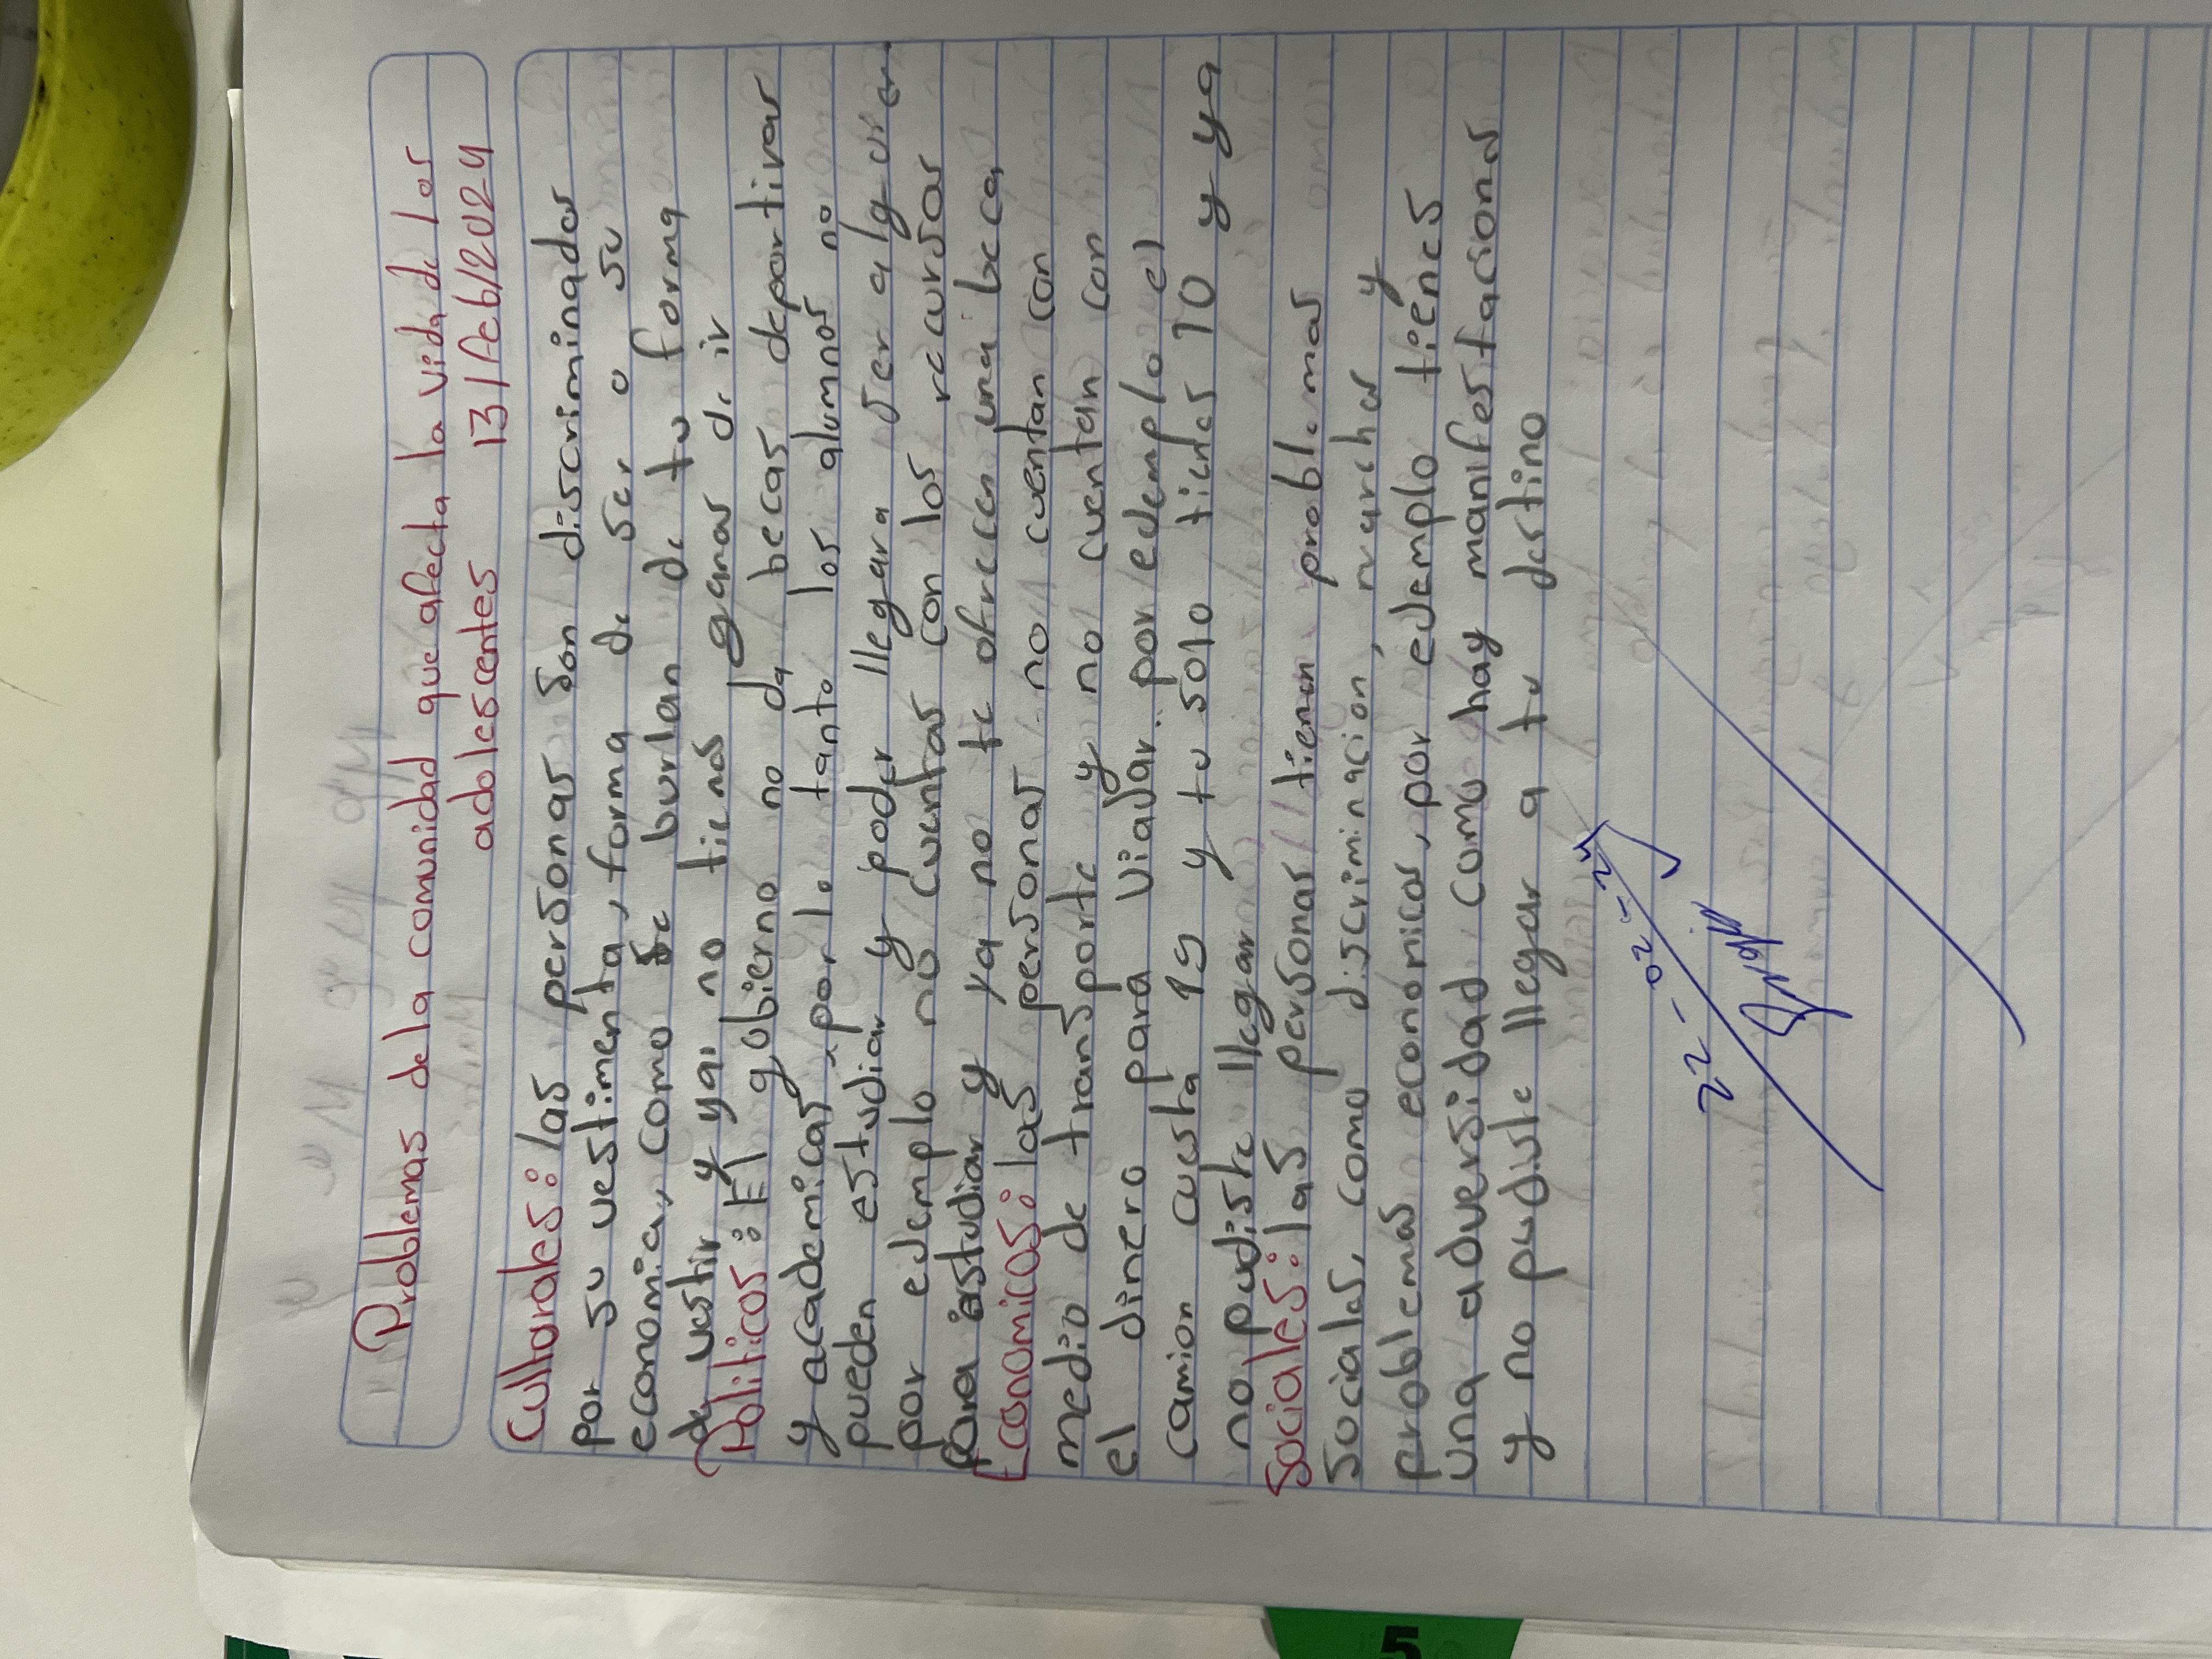 Problemas de la comunidad que afecta la vida de los
adolescentes 13/feb/2024
Culturales: las personas son discriminados
por su vestimenta, forma de ser o su
economia, como se burlan de tu forma
de vestir y ya no tienes ganas de ir
Politicos: El gobierno no da becas deportivas
y academicas, por lo tanto los alumnos no
pueden estudiar y poder llegara ser alguien
por ejemplo no cuentas con los recursos
para estudiar y ya no te ofrecen una beca
Economicos: las personas no cuentan con
medio de transporte y no cuentan con
el dinero para viajar por ejemplo el
camion cuesta 15 y tu solo tienes 10 y ya
no pudiste llegar
Sociales: las personas tienen problemas
sociales, como discriminacion, marchas y
problemas economicos, por ejemplo tienes
una adversidad como hay manifestacions
y no pudiste llegar a tu destino
22-02-24
5